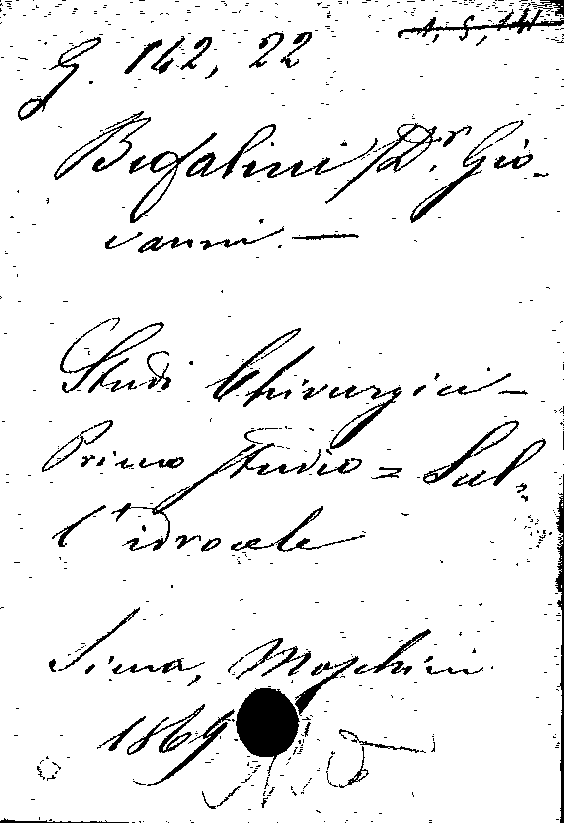 1, 5, 141
G. 142, 22
Bufalini / Dr. Gio-
vanni. —
Studi Chirurgici —
Primo studio = Sul-
l'idrocele
Siena, Moschini
1869